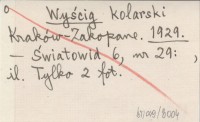 o
Wyścig kolarski
Kraków-Zakopane. 1929.
— Światowid 6, nr 29: ,
il. Tylko 2 fot.